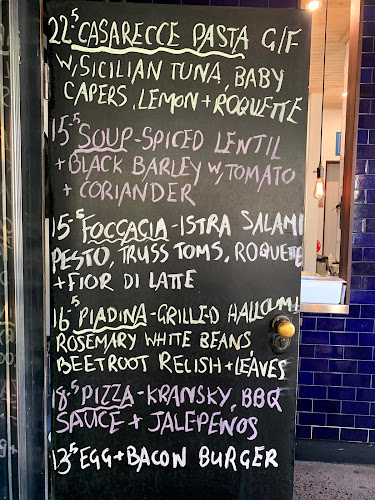 22.5 CASARECCE PASTA G/F
W/SICILIAN TUNA, BABY
CAPERS, LEMON + ROQUETTE
15.5 SOUP - SPICED LENTIL
+ BLACK BARLEY W/TOMATO
+ CORIANDER
15.5 FOCCACIA - ISTRA SALAMI
PESTO, TRUSS TOMS, ROQUETTE
+ FIOR DI LATTE
16.5 PIADINA - GRILLED HALLOUMI
ROSEMARY WHITE BEANS
BEETROOT RELISH + LEAVES
18.5 PIZZA - KRANSKY, BBQ
SAUCE + JALEPEÑOS
13.5 EGG + BACON BURGER